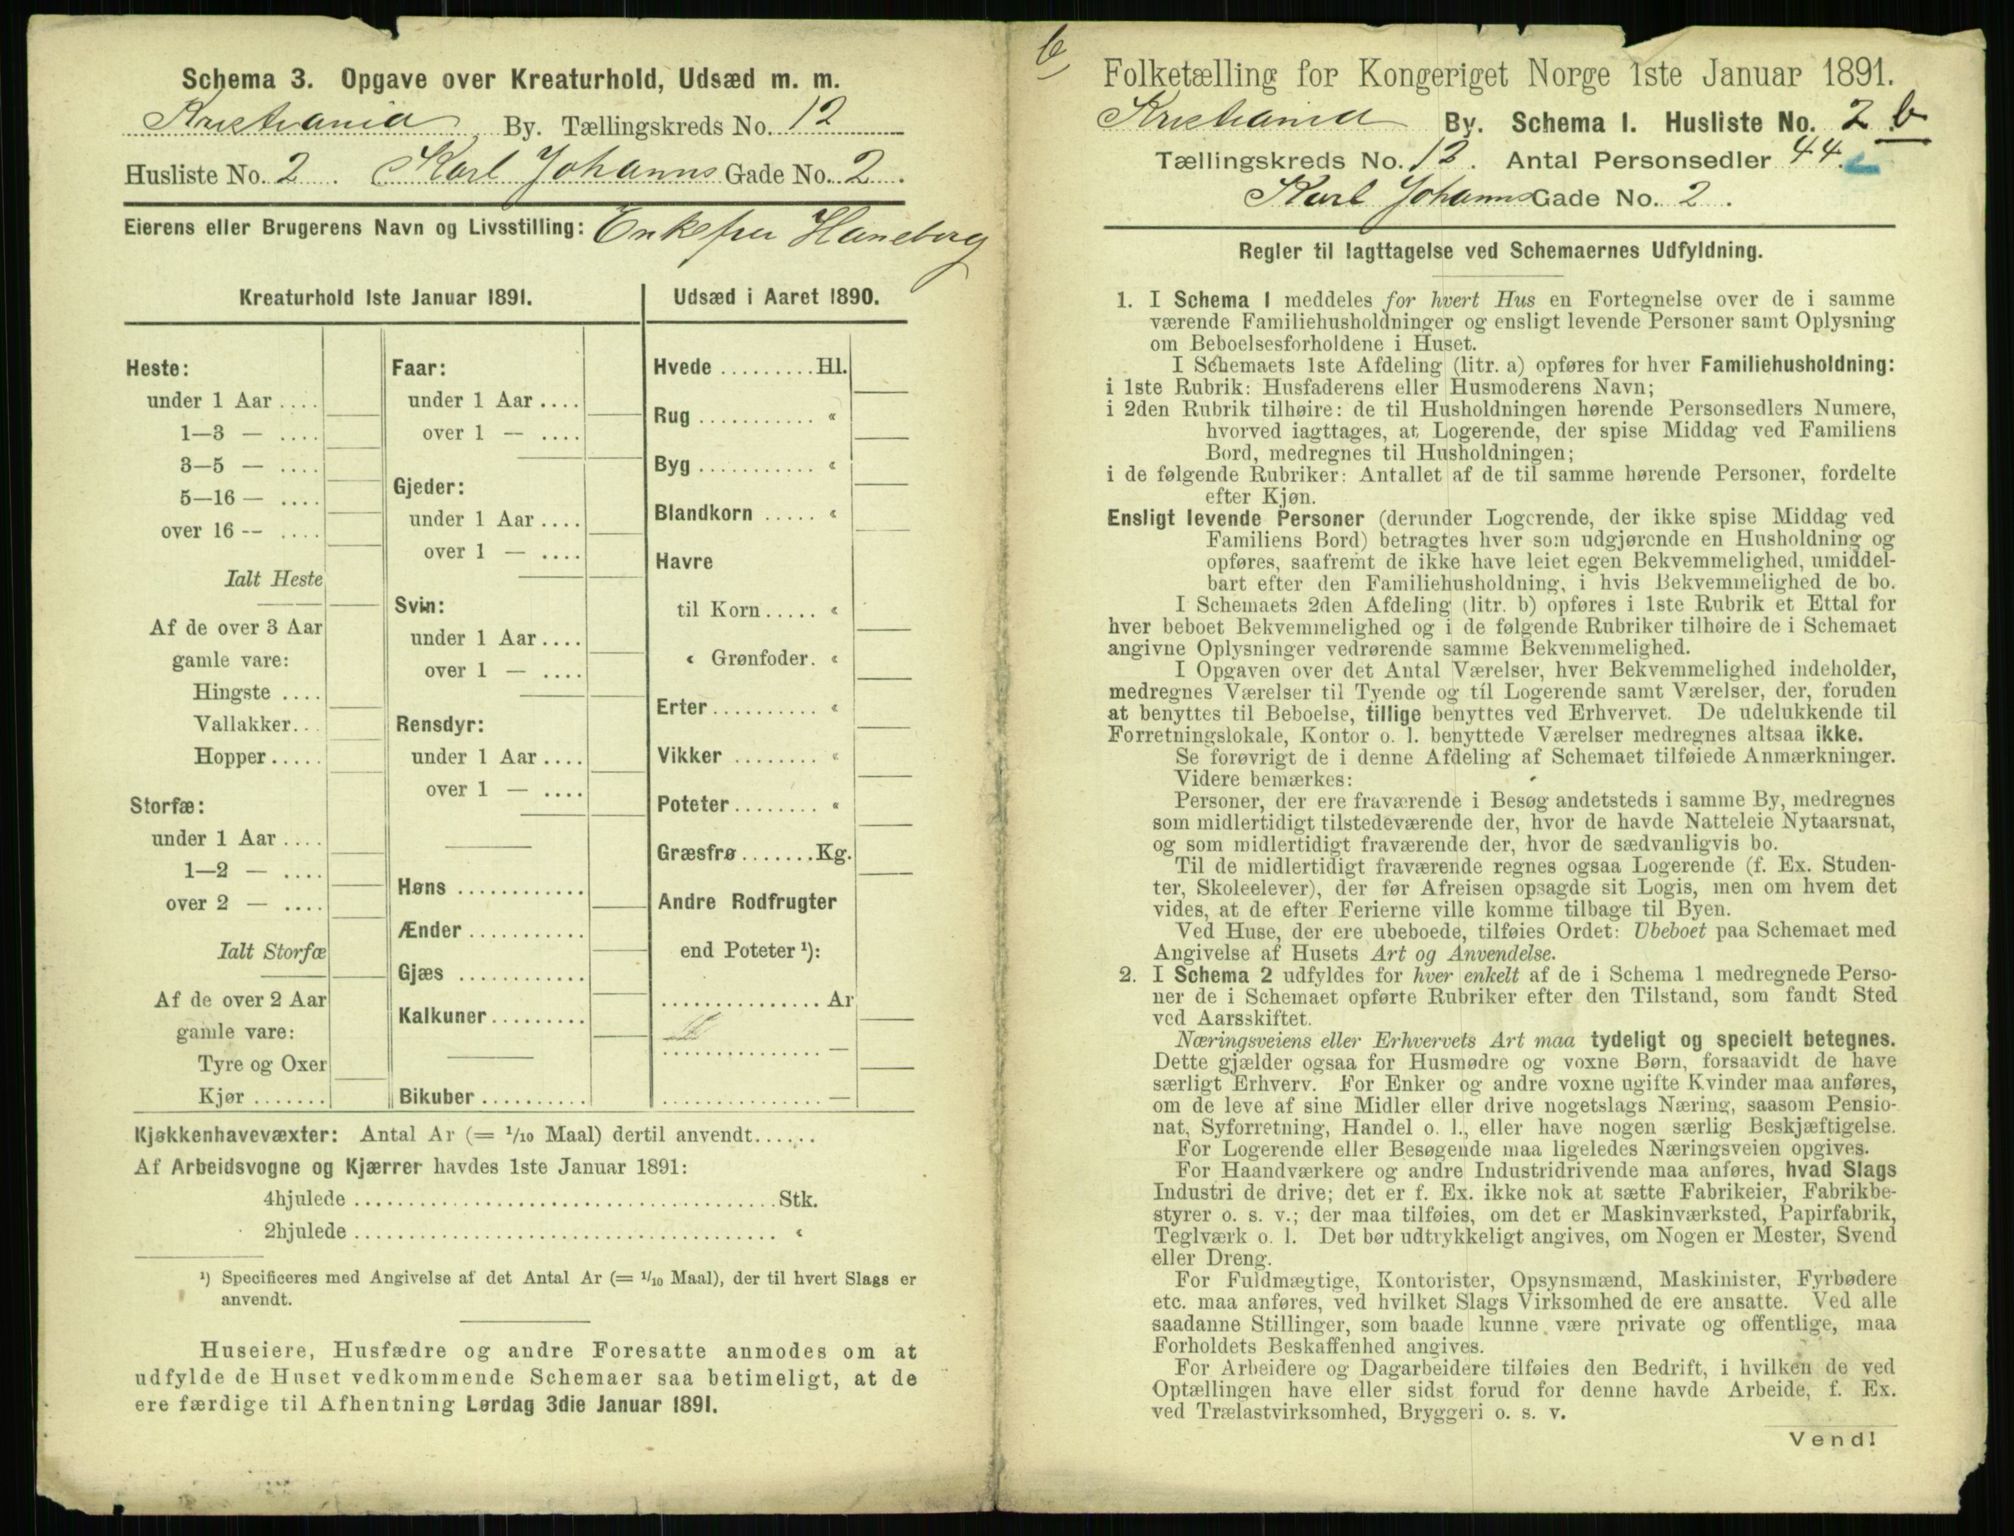 Schema 3. Opgave over Kreaturhold, Udsæd m. m.
Kristiania By. Tællingskreds No. 12
Husliste No. 2. Karl Johanns Gade No. 2.
Eierens eller Brugerens Navn og Livsstilling: Enkefru Haneborg
Kreaturhold 1ste Januar 1891.
Heste:
under 1 Aar ....
1—3 — ....
3—5 — ....
5—16 — ....
over 16 -- ....
Ialt Heste
Af de over 3 Aar
gamle vare:
Hingste ....
Vallakker. .
Hopper.....
Storfæ:
under 1 Aar ....
1—2 — ....
over 2 — ....
Ialt Storfæ
Af de over 2 Aar
gamle vare:
Tyre og Oxer
Kjør .......
Faar:
under 1 Aar ....
over 1 — ....
Gjeder:
under 1 Aar ....
over 1 — ....
Svin:
under 1 Aar ....
over 1 — ....
Rensdyr:
under 1 Aar ....
over 1 — ....
Høns ............
Ænder ...........
Gjæs ............
Kalkuner.........
Bikuber ..........
Udsæd i Aaret 1890.
Hvede .........Hl.
Rug ........... «
Byg ........... «
Blandkorn ..... «
Havre
til Korn..... «
« Grønfoder. «
Erter.......... «
Vikker ........ «
Poteter........ «
Græsfrø.......Kg.
Andre Rodfrugter
end Poteter ¹):
............... Ar
............... —
............... —
Kjøkkenhavevæxter: Antal Ar (= 1/10 Maal) dertil anvendt......
Af Arbeidsvogne og Kjærrer havdes 1ste Januar 1891:
4hjulede ....................................Stk.
2hjulede .................................... «
¹) Specificeres med Angivelse af det Antal Ar (= 1/10 Maal), der til hvert Slags er
anvendt.
Huseiere, Husfædre og andre Foresatte anmodes om at
udfylde de Huset vedkommende Schemaer saa betimeligt, at de
ere færdige til Afhentning Lørdag 3die Januar 1891.
Folketælling for Kongeriget Norge 1ste Januar 1891.
Kristiania By. Schema I. Husliste No. 2 b
Tællingskreds No. 12. Antal Personsedler 44.
Karl Johanns Gade No. 2.
Regler til Iagttagelse ved Schemaernes Udfyldning.
1. I Schema 1 meddeles for hvert Hus en Fortegnelse over de i samme
værende Familiehusholdninger og ensligt levende Personer samt Oplysning
om Beboelsesforholdene i Huset.
I Schemaets 1ste Afdeling (litr. a) opføres for hver Familiehusholdning:
i 1ste Rubrik: Husfaderens eller Husmoderens Navn;
i 2den Rubrik tilhøire: de til Husholdningen hørende Personsedlers Numere,
hvorved iagttages, at Logerende, der spise Middag ved Familiens
Bord, medregnes til Husholdningen;
i de følgende Rubriker: Antallet af de til samme hørende Personer, fordelte
efter Kjøn.
Ensligt levende Personer (derunder Logerende, der ikke spise Middag ved
Familiens Bord) betragtes hver som udgjørende en Husholdning og
opføres, saafremt de ikke have leiet egen Bekvemmelighed, umiddel-
bart efter den Familiehusholdning, i hvis Bekvemmelighed de bo.
I Schemaets 2den Afdeling (litr. b) opføres i 1ste Rubrik et Ettal for
hver beboet Bekvemmelighed og i de følgende Rubriker tilhøire de i Schemaet
angivne Oplysninger vedrørende samme Bekvemmelighed.
I Opgaven over det Antal Værelser, hver Bekvemmelighed indeholder,
medregnes Værelser til Tyende og til Logerende samt Værelser, der, foruden
at benyttes til Beboelse, tillige benyttes ved Erhvervet. De udelukkende til
Forretningslokale, Kontor o. l. benyttede Værelser medregnes altsaa ikke.
Se forøvrigt de i denne Afdeling af Schemaet tilføiede Anmærkninger.
Videre bemærkes:
Personer, der ere fraværende i Besøg andetsteds i samme By, medregnes
som midlertidigt tilstedeværende der, hvor de havde Natteleie Nytaarsnat,
og som midlertidigt fraværende der, hvor de sædvanligvis bo.
Til de midlertidigt fraværende regnes ogsaa Logerende (f. Ex. Studen-
ter, Skoleelever), der før Afreisen opsagde sit Logis, men om hvem det
vides, at de efter Ferierne ville komme tilbage til Byen.
Ved Huse, der ere ubeboede, tilføies Ordet: Ubeboet paa Schemaet med
Angivelse af Husets Art og Anvendelse.
2. I Schema 2 udfyldes for hver enkelt af de i Schema 1 medregnede Perso-
ner de i Schemaet opførte Rubriker efter den Tilstand, som fandt Sted
ved Aarsskiftet.
Næringsveiens eller Erhvervets Art maa tydeligt og specielt betegnes.
Dette gjælder ogsaa for Husmødre og voxne Børn, forsaavidt de have
særligt Erhverv. For Enker og andre voxne ugifte Kvinder maa anføres,
om de leve af sine Midler eller drive nogetslags Næring, saasom Pensio-
nat, Syforretning, Handel o. l., eller have nogen særlig Beskjæftigelse.
For Logerende eller Besøgende maa ligeledes Næringsveien opgives.
For Haandværkere og andre Industridrivende maa anføres, hvad Slags
Industri de drive; det er f. Ex. ikke nok at sætte Fabrikeier, Fabrikbe-
styrer o. s. v.; der maa tilføies, om det er Maskinværksted, Papirfabrik,
Teglværk o. l. Det bør udtrykkeligt angives, om Nogen er Mester, Svend
eller Dreng.
For Fuldmægtige, Kontorister, Opsynsmænd, Maskinister, Fyrbødere
etc. maa anføres, ved hvilket Slags Virksomhed de ere ansatte. Ved alle
saadanne Stillinger, som baade kunne være private og offentlige, maa
Forholdets Beskaffenhed angives.
For Arbeidere og Dagarbeidere tilføies den Bedrift, i hvilken de ved
Optællingen have eller sidst forud for denne havde Arbeide, f. Ex.
ved Trælastvirksomhed, Bryggeri o. s. v.
Vend!